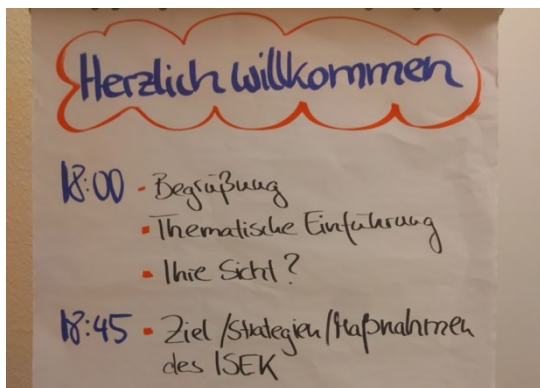 Herzlich willkommen
18:00 - Begrüßung
- Thematische Einführung
- Ihre Sicht?
18:45 - Ziel/Strategien/Maßnahmen
des ISEK